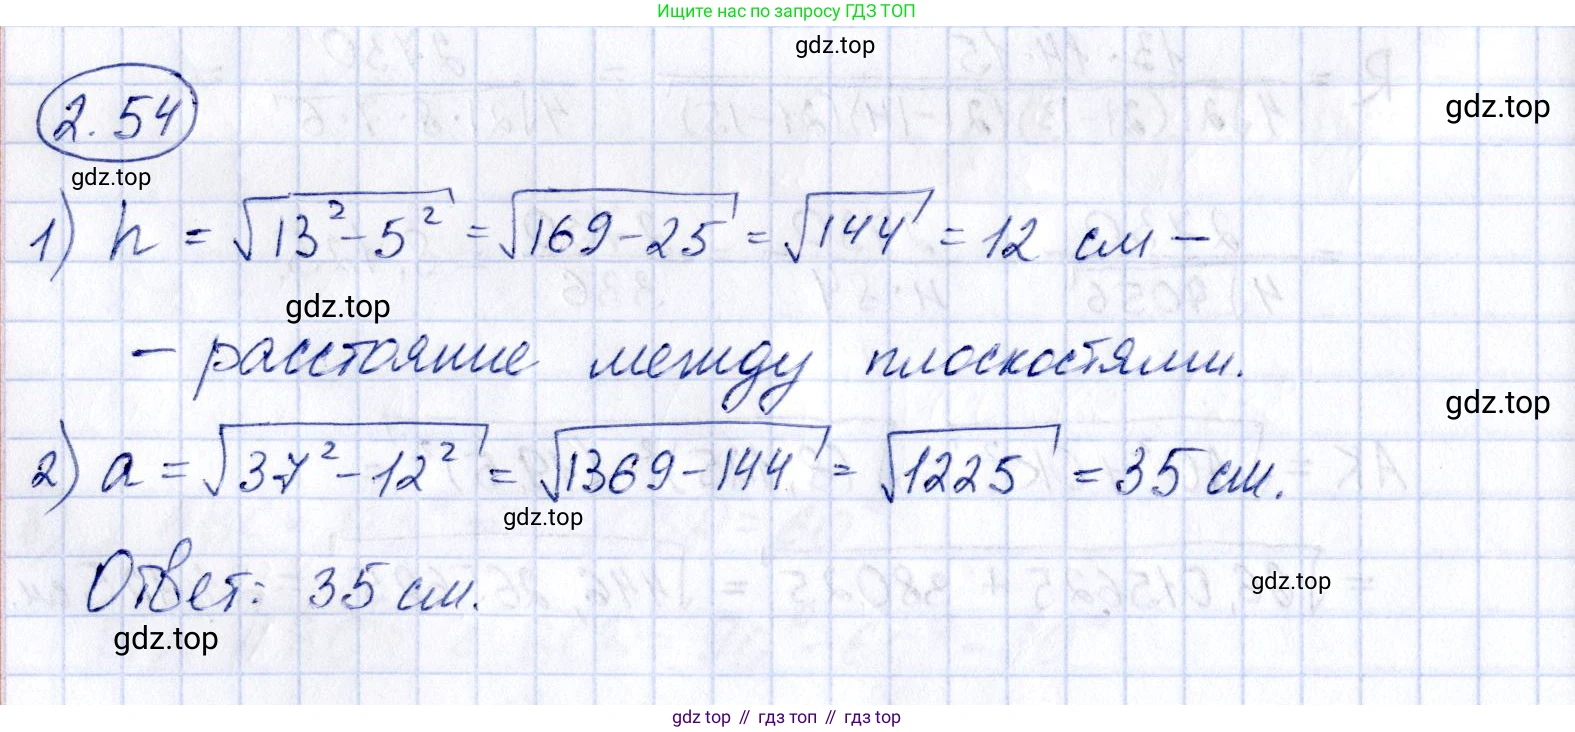 Ищите нас по запросу ГДЗ ТОП
gdz.top
2.54
gdz.top
gdz.top
1) h = √(13² - 5²) = √(169 - 25) = √144 = 12 см -
gdz.top
- расстояние между плоскостями.
gdz.top
2) a = √(37² - 12²) = √(1369 - 144) = √1225 = 35 см.
gdz.top
Ответ: 35 см.
gdz.top
gdz.top
gdz top // гдз топ // гдз top